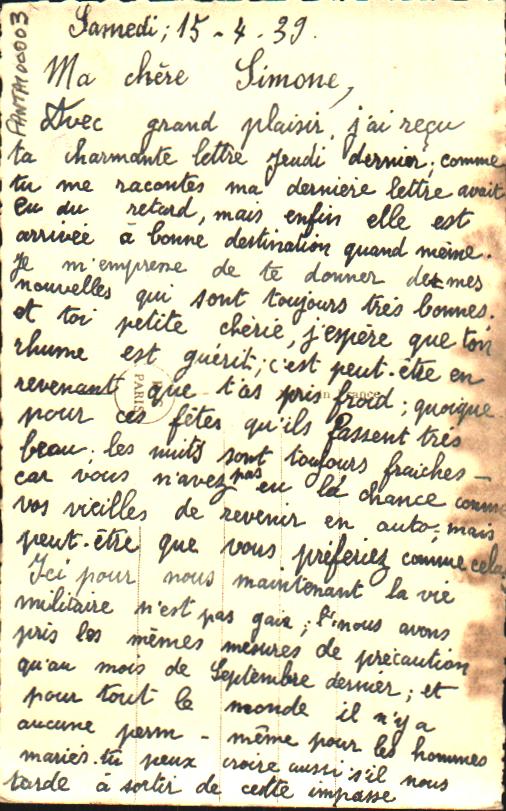 PANTA100003
Samedi, 15-4-39.
Ma chère Simone,
Avec grand plaisir, j'ai reçu
ta charmante lettre Jeudi dernier, comme
tu me racontes ma dernière lettre avait
eu du retard, mais enfin elle est
arrivée à bonne destination quand même.
Je m'empresse de te donner de mes
nouvelles qui sont toujours très bonnes.
et toi petite chérie, j'espère que ton
rhume est guérit; c'est peut-être en
revenant que t'as pris froid; quoique
pour ces fêtes qu'ils Passent très
beau, les nuits sont toujours fraiches -
car vous n'avez pas eu la chance comme
vos vieilles de revenir en auto, mais
peut-être que vous préfériez comme cela,
Ici pour nous maintenant la vie
militaire n'est pas gaie; nous avons
pris les mêmes mesures de précaution
qu'au mois de Septembre dernier; et
pour tout le monde il n'y a
aucune perm - même pour les hommes
mariés. tu peux croire aussi s'il nous
tarde à sortir de cette impasse
PARIS